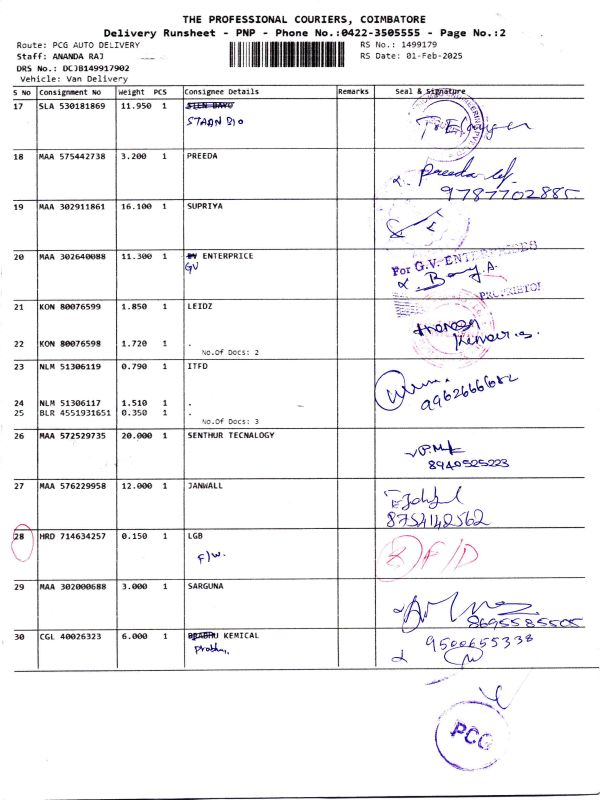 THE PROFESSIONAL COURIERS, COIMBATORE
Delivery Runsheet - PNP - Phone No.:0422-3505555 - Page No.:2
Route: PCG AUTO DELIVERY RS No.: 1499179
Staff: ANANDA RAJ RS Date: 01-Feb-2025
DRS No.: DCJB149917902
Vehicle: Van Delivery
S No Consignment No Weight PCS Consignee Details Remarks Seal & Signature
17 SLA 530181869 11.950 1
STAAN BIO
18 MAA 575442738 3.200 1 PREEDA
Preeda
9787702885
19 MAA 302911861 16.100 1 SUPRIYA
20 MAA 302640088 11.300 1 BV ENTERPRICE
GV
For G.V. ENTERPRISES
PROPRIETOR
21 KON 80076599 1.850 1 LEIDZ
22 KON 80076598 1.720 1 .
No.Of Docs: 2
23 NLM 51306119 0.790 1 ITFD
9962666682
24 NLM 51306117 1.510 1 .
25 BLR 4551931651 0.350 1 .
No.Of Docs: 3
26 MAA 572529735 20.000 1 SENTHUR TECNALOGY
8940525223
27 MAA 576229958 12.000 1 JANWALL
8754142562
28 HRD 714634257 0.150 1 LGB
F/W.
F/D
29 MAA 302000688 3.000 1 SARGUNA
8695585505
30 CGL 40026323 6.000 1 PRABHU KEMICAL
Prabhu,
9500655338
PCG